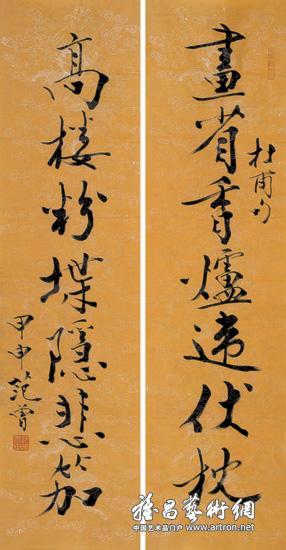 畫省香爐違伏枕
杜甫句
高樓粉堞隱悲笳
甲申 范曾
雅昌藝術網
中国艺术品门户 www.artron.net